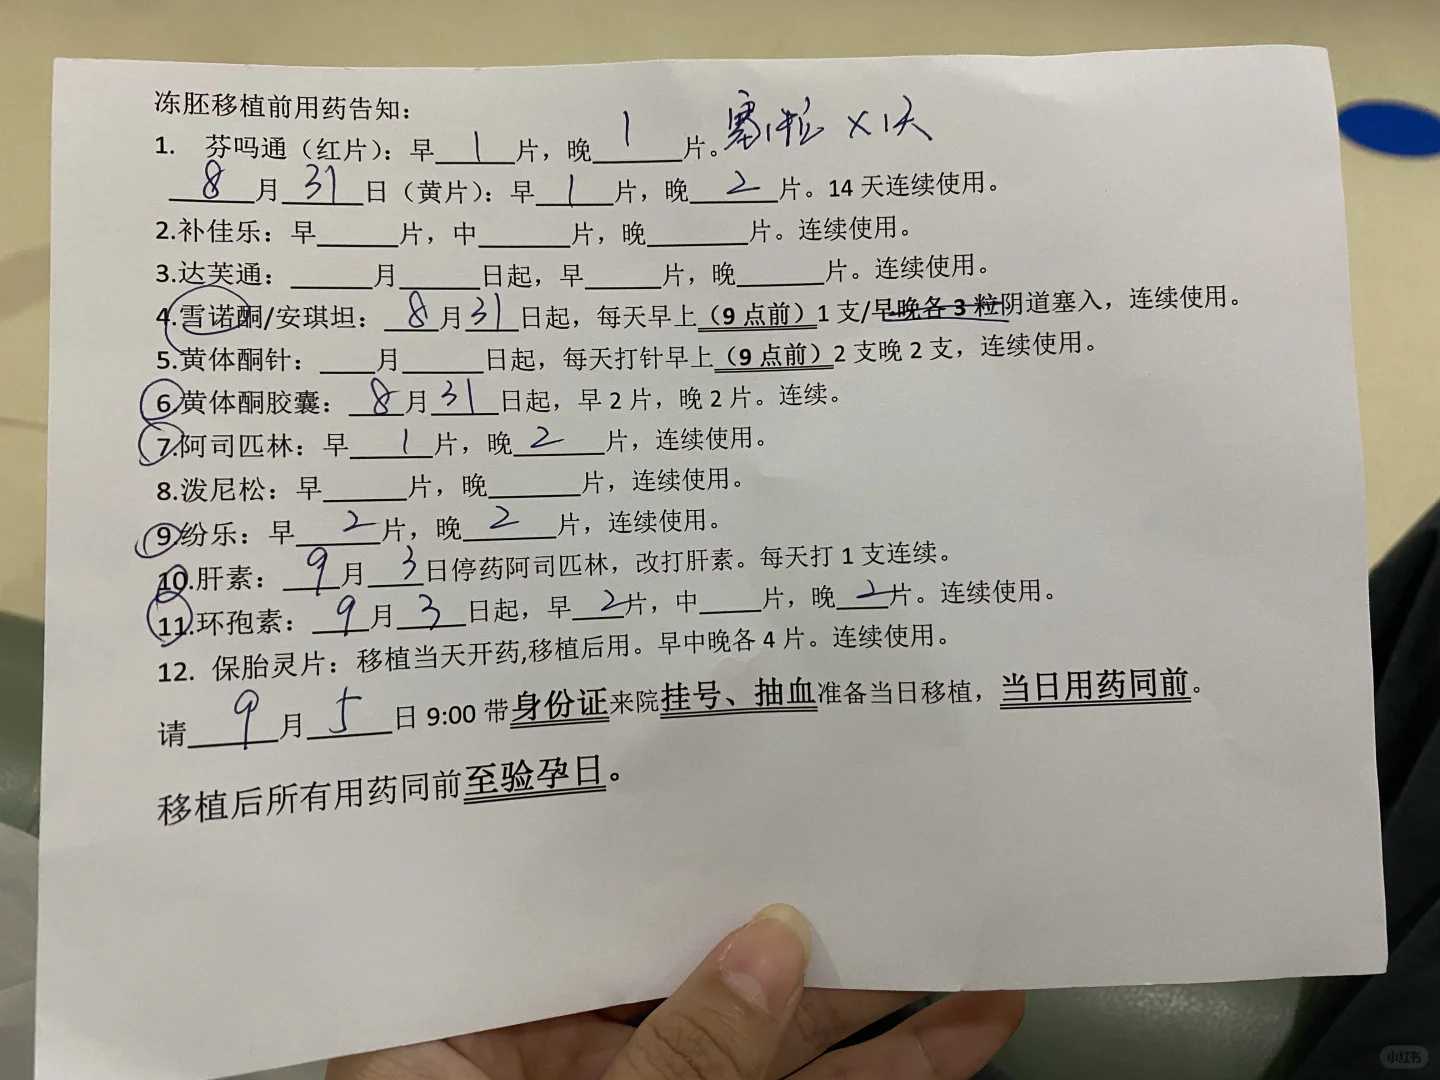 冻胚移植前用药告知：
1. 芬吗通（红片）：早 1 片，晚 1 片。塞1粒 ×1天
8月31日（黄片）：早 1 片，晚 2 片。14 天连续使用。
2.补佳乐：早____片，中____片，晚____片。连续使用。
3.达芙通：____月____日起，早____片，晚____片。连续使用。
4.雪诺酮/安琪坦：8月31日起，每天早上（9 点前）1 支/早晚各 3 粒阴道塞入，连续使用。
5.黄体酮针：____月____日起，每天打针早上（9 点前）2 支晚 2 支，连续使用。
6.黄体酮胶囊：8月31日起，早 2 片，晚 2 片。连续。
7.阿司匹林：早 1 片，晚 2 片，连续使用。
8.泼尼松：早____片，晚____片，连续使用。
9.纷乐：早 2 片，晚 2 片，连续使用。
10.肝素：9月3日停药阿司匹林，改打肝素。每天打 1 支连续。
11.环孢素：9月3日起，早 2 片，中____片，晚 2 片。连续使用。
12. 保胎灵片：移植当天开药,移植后用。早中晚各 4 片。连续使用。
请 9月5日 9:00 带身份证来院挂号、抽血准备当日移植，当日用药同前。
移植后所有用药同前至验孕日。
小红书